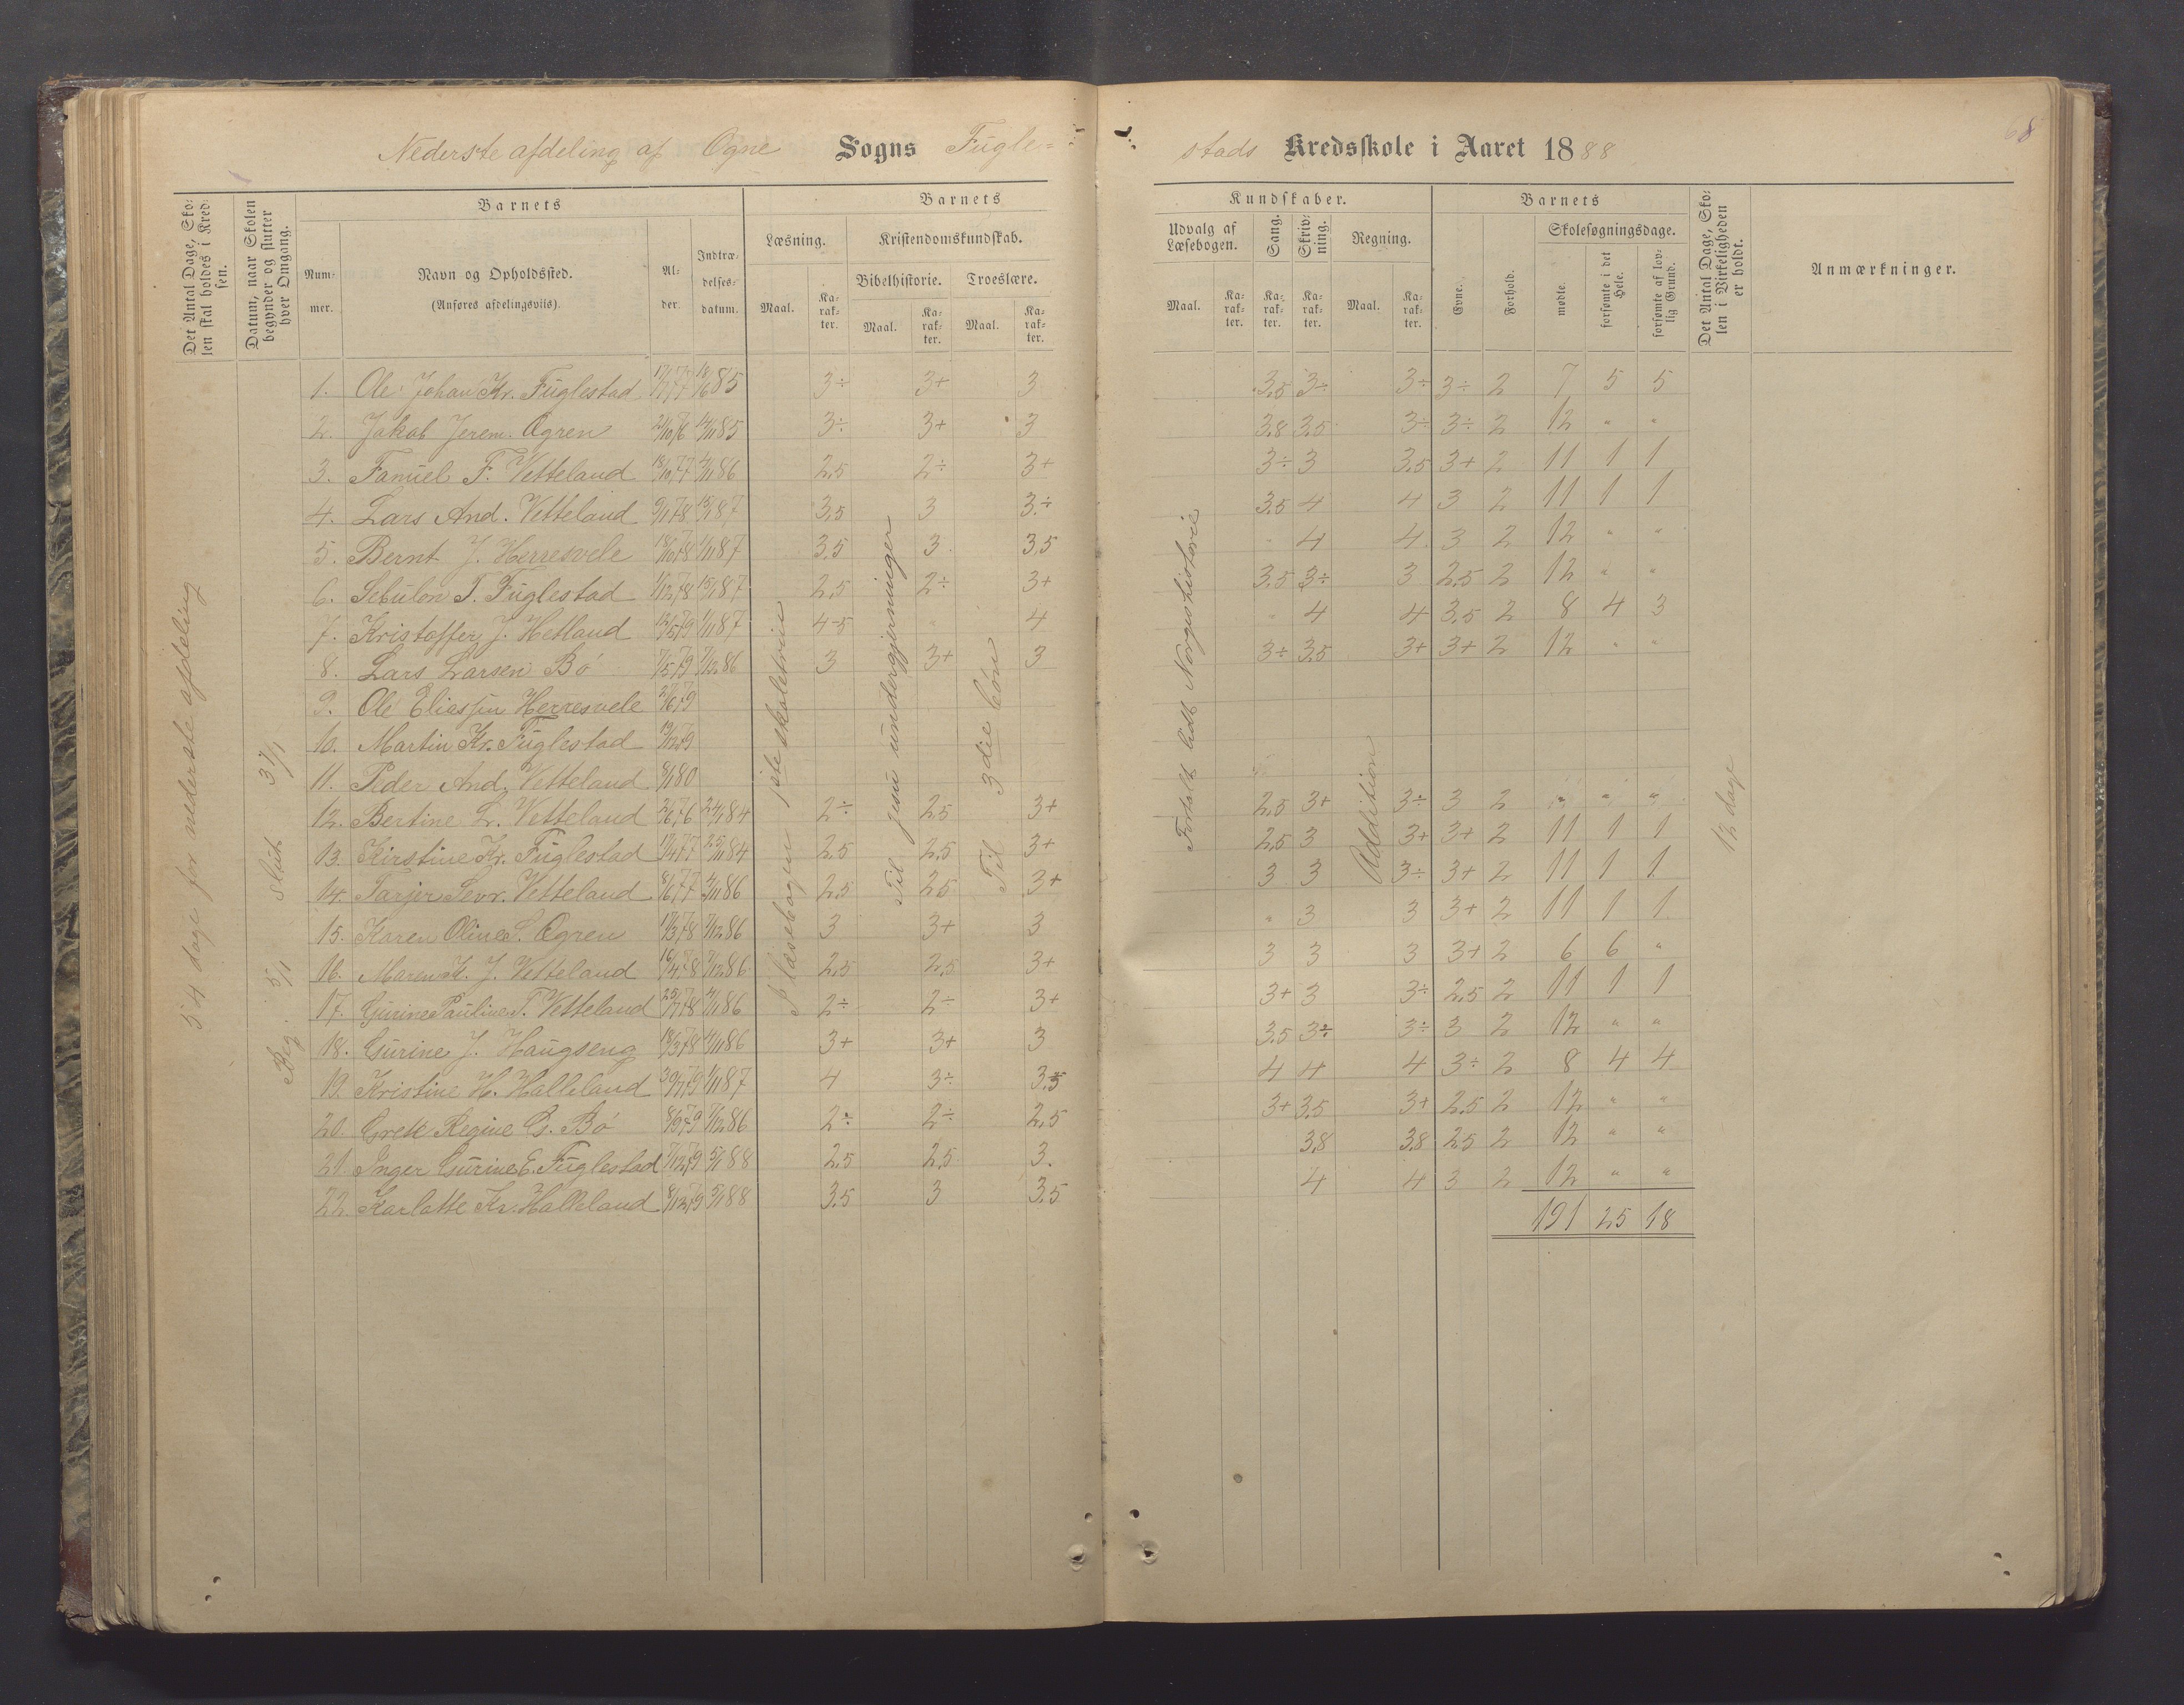 Nederste afdeling af Ogne Sogns Fugle-
stads Kredsskole i Aaret 1888
68
Det Antal Dage, Skolen skal holdes i Kredsen.
Datum, naar Skolen begynder og slutter hver Omgang.
Barnets
Nummer.
Navn og Opholdssted.
(Anføres afdelingsviis).
Alder.
Indtrædelsesdatum.
Barnets
Læsning.
Maal.
Karakter.
Kristendomskundskab.
Bibelhistorie.
Maal.
Karakter.
Troeslære.
Maal.
Karakter.
Kundskaber.
Udvalg af Læsebogen.
Maal.
Karakter.
Sang.
Karakter.
Skrivning.
Karakter.
Regning.
Maal.
Karakter.
Barnets
Evne.
Forhold.
Skolesøgningsdage.
mødte.
forsømte i det Hele.
forsømte af lovlig Grund.
Det Antal Dage, Skolen i Virkeligheden er holdt.
Anmærkninger.
54 dage for nederste afdeling
Beg. 5/1 Slut 31/1
I læsebogen 1ste skoletrin
Til jesu undergjerninger
Til 3die bøn
Fortalt lidt Norgeshistorie
Addition
12 dage
1. Ole Johan Kr. Fuglestad 17/7 77 18/6 85 3÷ 3+ 3 3,5 3÷ 3÷ 3÷ 2 7 5 5
2. Jakob Jerem. Ogren 2/10 76 14/11 85 3÷ 3+ 3 3,8 3,5 3÷ 3÷ 2 12 " "
3. Fanuel F. Vetteland 18/10 77 4/11 86 2,5 2÷ 3+ 3÷ 3 3,5 3+ 2 11 1 1
4. Lars And. Vetteland 9/1 78 15/1 87 3,5 3 3÷ 3,5 4 4 3 2 11 1 1
5. Bernt J. Herresvele 18/10 78 1/11 87 3,5 3 3,5 " 4 4 3 2 12 " "
6. Sebulon T. Fuglestad 1/12 78 15/1 87 2,5 2÷ 3+ 3,5 3÷ 3 2,5 2 12 " "
7. Kristoffer J. Hetland 12/5 79 1/11 87 4-5 " 4 " 4 4 3,5 2 8 4 3
8. Lars Larsen Bø 7/5 79 7/12 86 3 3+ 3 3÷ 3,5 3+ 3+ 2 12 " "
9. Ole Eliassen Herresvele 27/6 79
10. Martin Kr. Fuglestad 19/12 79
11. Peder And. Vetteland 8/1 80
12. Bertine L. Vetteland 2/6 76 24/1 84 2÷ 2,5 3+ 2,5 3+ 3÷ 3 2 " " "
13. Kirstine Kr. Fuglestad 1/4 77 25/11 84 2,5 2,5 3+ 2,5 3 3+ 3+ 2 11 1 1
14. Tarjer Sevr. Vetteland 8/6 77 4/11 86 2,5 2,5 3+ 3 3 3÷ 3+ 2 11 1 1
15. Karen Oline S. Ogren 11/3 78 7/12 86 3 3+ 3 " 3 3 3+ 2 11 1 1
16. Maren K. J. Vetteland 16/4 78 7/12 86 2,5 2,5 3+ 3 3 3 3+ 2 6 6 "
17. Gurine Pauline T. Vetteland 25/7 78 4/11 86 2÷ 2÷ 3+ 3+ 3 3÷ 2,5 2 11 1 1
18. Gurine J. Haugseng 18/3 78 4/11 86 3+ 3+ 3 3,5 3÷ 3÷ 3 2 12 " "
19. Kristine H. Halleland 30/7 79 1/11 87 4 3÷ 3,5 4 4 4 3÷ 2 8 4 4
20. Grete Regine G. Bø 8/9 79 7/12 86 2÷ 2÷ 2,5 3+ 3,5 3+ 2,5 2 12 " "
21. Inger Gurine E. Fuglestad 7/12 79 5/1 88 2,5 2,5 3. 3,8 3,8 2,5 2 12 " "
22. Karlotte Kr. Halleland 8/12 79 5/1 88 3,5 3 3,5 4 4 3 2 12 " "
191 25 18